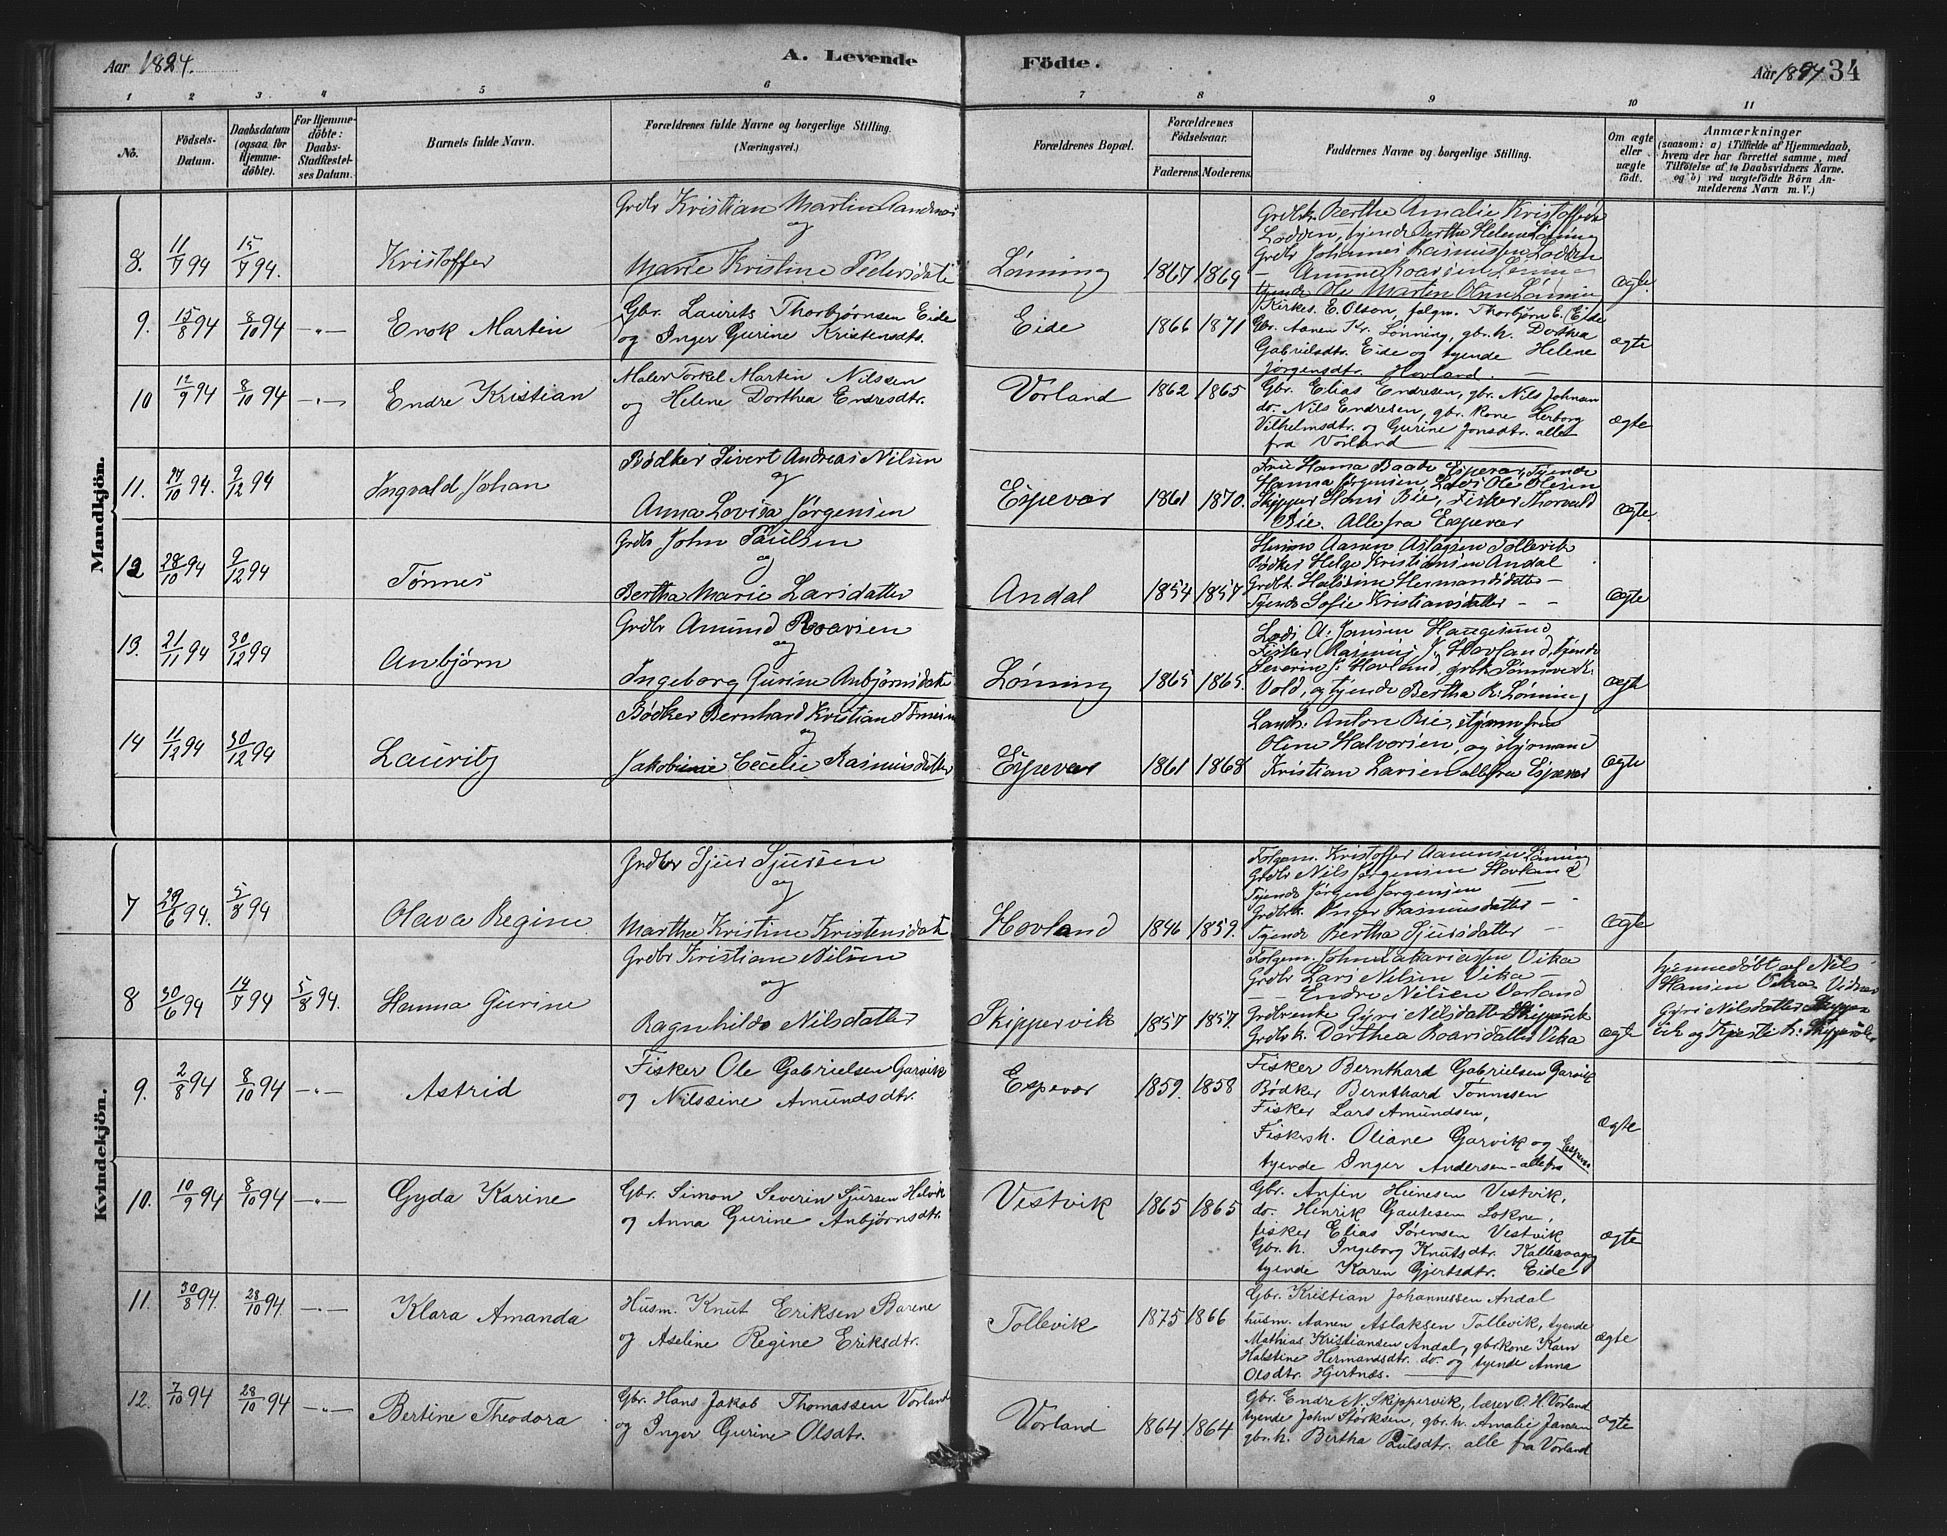 Aar 1894.
A. Levende
Födte.
Aar 1894
34
1 2 3 4 5 6 7 8 9 10 11
No.
Födsels-
Datum.
Daabsdatum
(ogsaa for
Hjemme-
döbte).
For Hjemme-
döbte:
Daabs-
Stadfæstel-
ses Datum.
Barnets fulde Navn.
Forældrenes fulde Navne og borgerlige Stilling.
(Næringsvei.)
Forældrenes Bopæl.
Forældrenes
Födselsaar.
Faderens.
Moderens.
Faddernes Navne og borgerlige Stilling.
Om ægte
eller
uægte
födt.
Anmærkninger
(saasom: a) i Tilfælde af Hjemmedaab,
hvem der har forrettet samme, med
Tilföielse af to Daabsvidners Navne.
og b) ved uægtefödte Börn An-
melderens Navn m. V.)
Mandkjön.
Grdbr Kristian Martin
og
8. 11/7 94 15/7 94. Kristoffer
Marie Kristine Pedersdatt
Lønning 1867 1869
Grdbk. Bertha Amalie
Lodden, tjende Bertha Helene Lønning
Grdbr Johannes Rasmussen Lodden
tjende Ole Martin Olsen Lønning
ægte.
9. 15/8 94 8/10 94 -"- Enok Martin
Gbr. Laurits Thorbjørnsen Eide
og Inger Gurine Kristensdtr.
Eide 1866 1871
Kirkes. E. Olson, folgm. Thorbjørn E. Eide
Gbr. Aanen Kr. Lønning, gb.k. Dorthea
Gabrielsdtr. Eide og tjende Helene
Jørgensdt. Hovland. -
ægte
10 12/9 94 8/10 94 -"- Endre Kristian
Maler Torkel Martin Nilssen
og Helene Dorthea Endresdtr.
Vorland 1862 1865
Gbr. Elias Endresen, gbr. Nils Johnsen
do. Nils Endresen, gbr. kone Herborg
Vilhelmsdtr. og Gurine Jonsdtr. alle
fra Vorland
ægte
11. 27/10 94. 9/12 94 Ingvald Johan
Bødker Sivert Andreas Nilsen
og
Anna Lovisa Jørgensen
Espevær 1861 1870.
Frue Hanna Baabe Espevær, Tjende
Hanna Jørgensen, Lods Ole Olsen
Skipper Hans Bie, Fisker Thorvald
Bie. Alle fra Espevær
ægte.
12 28/10 94 9/12 94 Tønnes
Grdbr John Paulsen
og
Bertha Marie Larsdatter
Andal 1854 1857
Husm. Aanen Aslagsen Tollevik
Bødker Helge Kristiansen Andal
Grdbk. Halstine Hermandsdatter -
Tjende Sofie Kristiansdatter - -
ægte
13. 21/11 94 30/12 94 Anbjørn
Grdbr Amund Roarsen
og
Ingeborg Gurine Anbjørnsdatt
Lønning 1865 1865.
Lods A. Jansen Haugesund
Fisker Rasmus J. Hovland, tjende
Severin J. Hovland, grbk
Vold, og tjende Bertha R. Lønning
ægte
14 11/12 94 30/12 94 Lauritz
Bødker Bernhard Kristian
og
Jakobine Cecilie Rasmusdatter
Espevær 1861 1868
Landh. Anton Bie,
Oline Halvorsen, og
Kristian Larsen alle fra Espevær
ægte
Kvindekjön.
7 29/6 94. 5/8 94 Olava Regine
Grdbr Sjur Sjursen
og
Marthea Kristine Kristensdatt
Hovland 1846 1859.
Folgem. Kristoffer Aanensen Lønning
Grdbr Nils Jørgensen Hovland
Tjende Jørgen Jørgensen -
Grdbrk. Inger Rasmusdatter -
Tjende Bertha Sjursdatter -
ægte
8 30/6 94 14/7 94 5/8 94. Hanna Gurine
Grdbr Kristian Nilsen
og
Ragnhilde Nilsdatter
Skippervik 1857 1857.
Folgem. John Zakariassen Vika
Grdbr Lars Nilsen Vika -
- Endre Nilsen Vorland
Grdbrenke Gyri Nilsdatter Skippervik
Grdbrk. Dorthea Roarsdatter Vika
ægte
hjemmedøbt af Nils
Hansen Økra Vidner
Gyri Nilsdatter Skipper
vik og Kjersti K. Skippervik
9. 2/8 94 8/10 94 -"- Astrid
Fisker Ole Gabrielsen Garvik
og Nilssine Amundsdtr.
Espevær 1859. 1858
Fisker Bernthard Gabrielsen Garvik
Bødker Bernthard Tønnesen
Fisker Lars Amundsen,
Fiskersk. Oliane Garvik og
tjende Inger Andersen - alle fra Espevær
ægte
10. 10/9 94 8/10 94 -"- Gyda Karine
Gbr. Simon Severin Sjursen Helvik
og Anna Gurine Anbjørnsdtr.
Vestvik 1865 1865
Gbr. Anfin Heinesen Vestvik,
do. Henrik Gautesen Løkne,
fisker Elias Sørensen Vestvik
Gbr. k. Ingeborg Knutsdtr. Kallevaag
tjende Karen Gjertsdtr. Eide
ægte
11. 30/8 94. 28/10 94. -"- Klara Amanda
Husm. Knut Eriksen Barene
og Aseline Regine Eriksdtr.
Tollevik 1875 1866
Gbr. Kristian Johannessen Andal
husm. Aanen Aslaksen Tollevik, tjende
Mathias Kristiansen Andal, gbr. kone Karn
Halstine Hermandsdtr. do. og tjende Anna
Olsdtr. Hjertnæs.
ægte
12. 7/10 94 28/10 94 -"- Bertine Theodora
Gbr. Hans Jakob Thomassen Vorland
og Inger Gurine Olsdtr.
Vorland 1864. 1864
Gbr. Endre N. Skippervik, lærer O. H. Vorland
tjende John Størksen, gbr. k. Amalie Jansen
gbr. k. Bertha Pulsdtr. alle fra Vorland
ægte